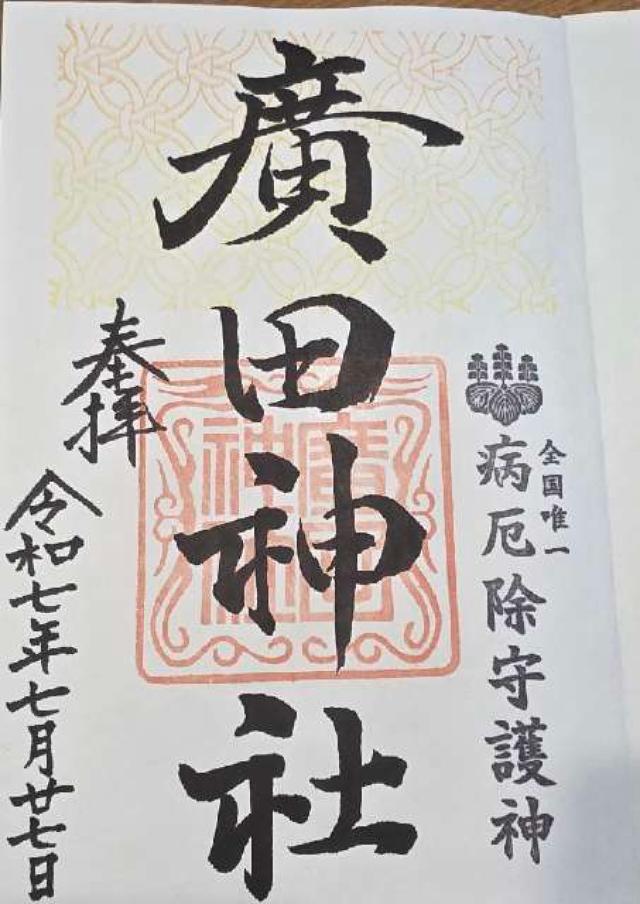 全国唯一
病厄除守護神
廣田神社
奉拝
令和七年七月廿七日